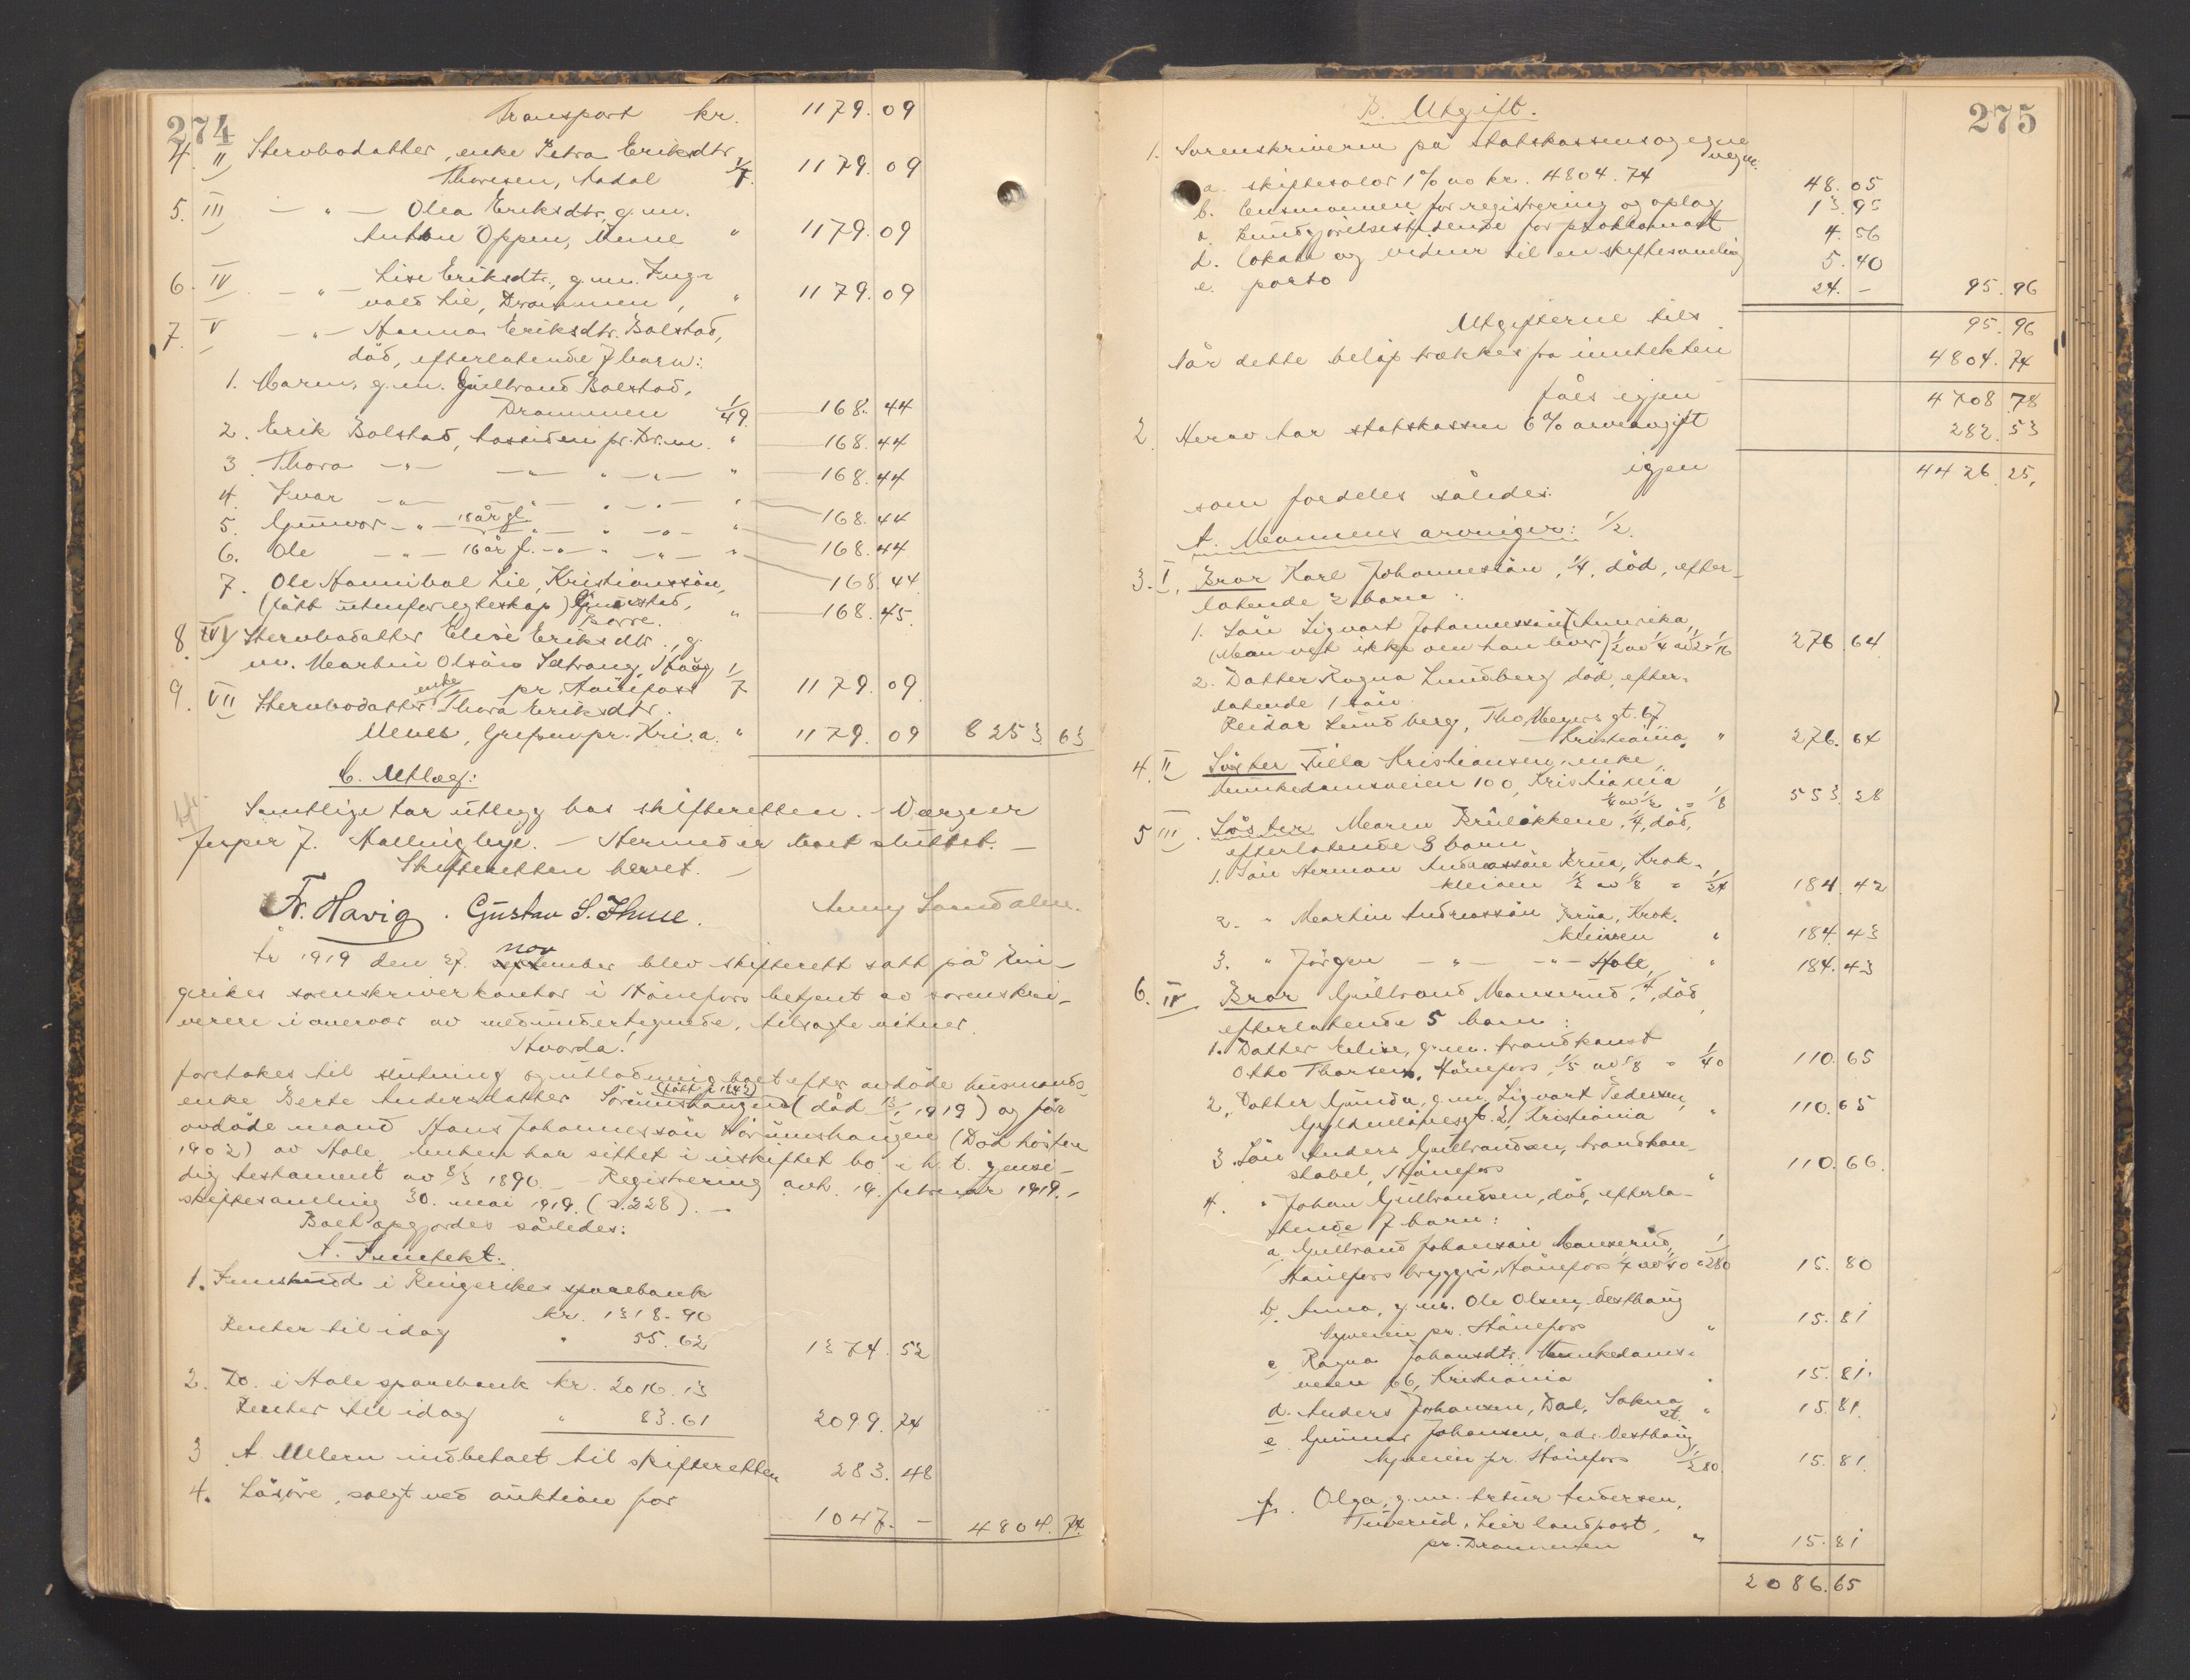 274
Transport kr. 1179.09
4. II Stervbodatter, enke Petra Eriksdtr.
Thoresen, Aadal 1/7. 1179.09
5. III — " — Olea Eriksdtr, g.m.
Anton Oppen, Modum " 1179.09
6. IV — " — Lise Eriksdtr., g.m. Ing-
vald Lie, Drammen, " 1179.09
7. V — " — Hanna Eriksdtr. Bolstad,
död, efterlatende 7 barn:
1. Maren, g.m. Gulbrand Bolstad,
Drammen 1/49. 168.44
2. Erik Bolstad, Aassiden pr. Dr.m. " 168.44
3. Thora —"— —"— " —"— " 168.44
4. Ivar —"— —"— " —"— " 168.44
5. Gunvor —"— 18 år gl. —"— " —"— " 168.44
6. Ole —"— 16 år gl. —"— " —"— " 168.44
7. Ole Hannibal Lie, Kristianssön,
(född utenfor egteskap)
Borre. " 168.45.
8. VI Stervbodatter Elise Eriksdtr., g.
m. Martin Olsön Sætrang, Skaug
pr. Hönefoss 1/7 1179.09.
9. VII Stervbodatter enke Thora Eriksdtr.
Meues, Grefsen pr. Kr.i.a. " 1179.09 8253.63
C. Utlæg:
Samtlige har utlegg hos skifteretten. – Værger er
Jesper J. Hallingbye. – Hermed er boet sluttet. —
Skifteretten hevet. —
Fr. Havig. Gustav S. Thune. Anny Sandalen.
År 1919 den 27. september nov blev skifterett satt på Rin-
gerikes sorenskriverkontor i Hönefoss betjent av sorenskri-
veren i overvær av medundertegnede, tilsagte vitner.
Hvorda!
foretokes til slutning og utlodning boet efter avdöde husmands-
enke Berte Andersdatter Sörumshaugen (född i 1842) (död 13/1 1919) og för
avdöde mand Hans Johannessön Sörumshaugen (Död hösten
1902) av Hole. Enken har sittet i uskiftet bo i h. t. gensi-
dig testament av 8/3 1890. – Registrering avh. 19. februar 1919. –
skiftesamling 30. mai 1919. (s. 228). —
Boet opgjordes således:
A. Inntekt:
1. Innskudd i Ringerikes sparebank
kr. 1318.90
Renter til idag " 55.62 1374.52
2. Do. i Hole sparebank kr. 2016.13
Renter til idag " 83.61 2099.74
3. A. Ullern indbetalt til skifteretten 283.48
4. Lösöre, solgt ved auktion for 1047.– 4804.74
275
B. Utgift.
1. Sorenskriveren på statskassens og egne
vegne.
a. skiftesalær 1% av kr. 4804.74 48.05
b. lensmannen for registrering og oplag 13.95
c. Kundgjörelsestidende for proklamaet 4.56
d. lokale og vidner til en skiftesamling 5.40
e. porto 24.– 95.96
Utgifterne tils. 95.96
Når dette belöp trækkes fra inntekten 4804.74
fåes igjen 4708.78
2. Herav har statskassen 6% arveavgift 282.53
igjen 4426.25,
som fordeles således:
A. Mannens arvinger: 1/2.
3. I. Bror Karl Johannessön, 1/4, död, efter-
latende 2 barn:
1. Sön Sigvart Johannessön, Amerika,
(Man vet ikke om han lever) 1/2 av 1/4 av 1/2 = 1/16 276.64
2. Datter Ragna Lundberg, död, efter-
latende 1 sön
Reidar Lundberg, Tho. Meyers gt. 67
Kristiania " 276.64
4. II Söster Tilla Kristiansen, enke,
Munkedamsveien 100, Kristiania
1/4 av 1/2 = 1/8 553.28
5. III. Söster Maren Brulökkene, 1/4, död,
efterlatende 3 barn
1. Sön Herman Andreassön Brua, Krok-
kleiven 1/3 av 1/8 = 1/24 184.42
2. " Martin Andreassön Brua, Krok-
kleiven " 184.43
3. " Jörgen —"— —"— Hole, " 184.43
6. IV Bror Gulbrand Monserud, 1/4, död
efterlatende 5 barn:
1. Datter Elise, g.m. brandkonst.
Otto Thorsen, Hönefoss, 1/5 av 1/8 = 1/40 110.65
2. Datter Gunda, g.m. Sigvart Pedersen,
Gyldenlövesgt. 2, Kristiania " 110.65
3. Sön Anders Gulbrandsen, brandkon-
stabel, Hönefoss " 110.66.
4. " Johan Gulbrandsen, död, efterla-
tende 7 barn:
a. Gulbrand Johansön Monserud,
Hönefoss bryggeri, Hönefoss 1/7 av 1/40 = 1/280 15.80
b. Anna, g.m. Ole Olsen, Vesthaug
Nyveien pr. Hönefoss " 15.81
c. Ragna Johansdtr. Munkedams-
veien 66, Kristiania " 15.81.
d. Anders Johansen, Dal, Sokna
st. " 15.81.
e. Gunnar Johansen, adr. Vesthaug,
Nyveien pr. Hönefoss 1/280 15.81.
f. Olga, g.m. Artur Andersen,
Tuverud, Lier landpost,
pr. Drammen " 15.81
2086.65